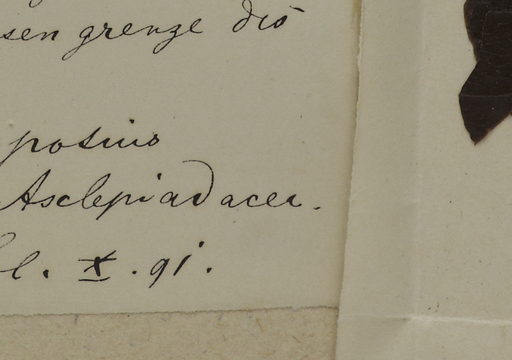 sen grenze dis
posuis
Asclepiadacea.
l. X. 91.